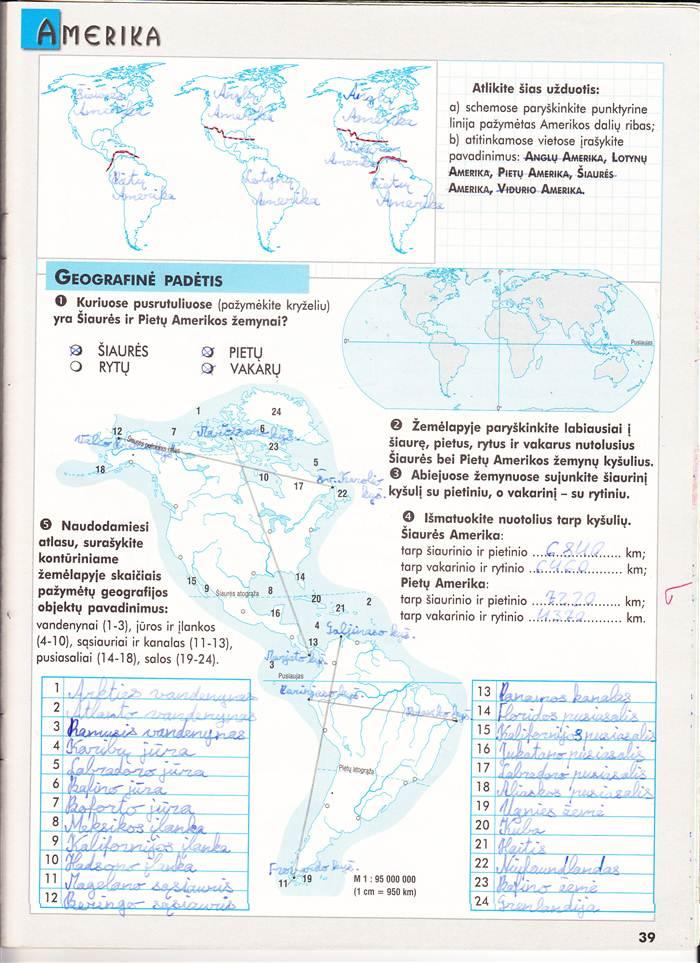 AMERIKA
Šiaurės
Amerika
Pietų
Amerika
Anglų
Amerika
Lotynų
Amerika
Anglų
Amerika
Vidurio
Amerika
Pietų
Amerika
Atlikite šias užduotis:
a) schemose paryškinkite punktyrine
linija pažymėtas Amerikos dalių ribas;
b) atitinkamose vietose įrašykite
pavadinimus: ANGLŲ AMERIKA, LOTYNŲ
AMERIKA, PIETŲ AMERIKA, ŠIAURĖS
AMERIKA, VIDURIO AMERIKA.
GEOGRAFINĖ PADĖTIS
1 Kuriuose pusrutuliuose (pažymėkite kryželiu)
yra Šiaurės ir Pietų Amerikos žemynai?
ŠIAURĖS PIETŲ
RYTŲ VAKARŲ
0° Pusiaujas
0°
2 Žemėlapyje paryškinkite labiausiai į
šiaurę, pietus, rytus ir vakarus nutolusius
Šiaurės bei Pietų Amerikos žemynų kyšulius.
3 Abiejuose žemynuose sujunkite šiaurinį
kyšulį su pietiniu, o vakarinį – su rytiniu.
4 Išmatuokite nuotolius tarp kyšulių.
Šiaurės Amerika:
tarp šiaurinio ir pietinio 6840 km;
tarp vakarinio ir rytinio 6460 km;
Pietų Amerika:
tarp šiaurinio ir pietinio 7220 km;
tarp vakarinio ir rytinio 4370 km.
5 Naudodamiesi
atlasu, surašykite
kontūriniame
žemėlapyje skaičiais
pažymėtų geografijos
objektų pavadinimus:
vandenynai (1-3), jūros ir įlankos
(4-10), sąsiauriai ir kanalas (11-13),
pusiasaliai (14-18), salos (19-24).
1
24
12
7
6
23
Šiaurės poliarinis ratas
18
5
10
17
22
15
9
Šiaurės atogrąža
8
14
20
2
16
21
4
Galjinaso kyš.
13
Marjato kyš.
3
Pusiaujas
Parinjaso kyš.
Pietų atogrąža
Frouardo kyš.
11 19
M 1 : 95 000 000
(1 cm = 950 km)
1 Arkties vandenynas
2 Atlanto vandenynas
3 Ramusis vandenynas
4 Karibų jūra
5 Labradoro jūra
6 Bafino jūra
7 Boforto jūra
8 Meksikos įlanka
9 Kalifornijos įlanka
10 Hudsono įlanka
11 Magelano sąsiauris
12 Beringo sąsiauris
13 Panamos kanalas
14 Floridos pusiasalis
15 Kalifornijos pusiasalis
16 Jukatano pusiasalis
17 Labradoro pusiasalis
18 Aliaskos pusiasalis
19 Ugnies žemė
20 Kuba
21 Haitis
22 Niufaundlandas
23 Bafino žemė
24 Grenlandija
39